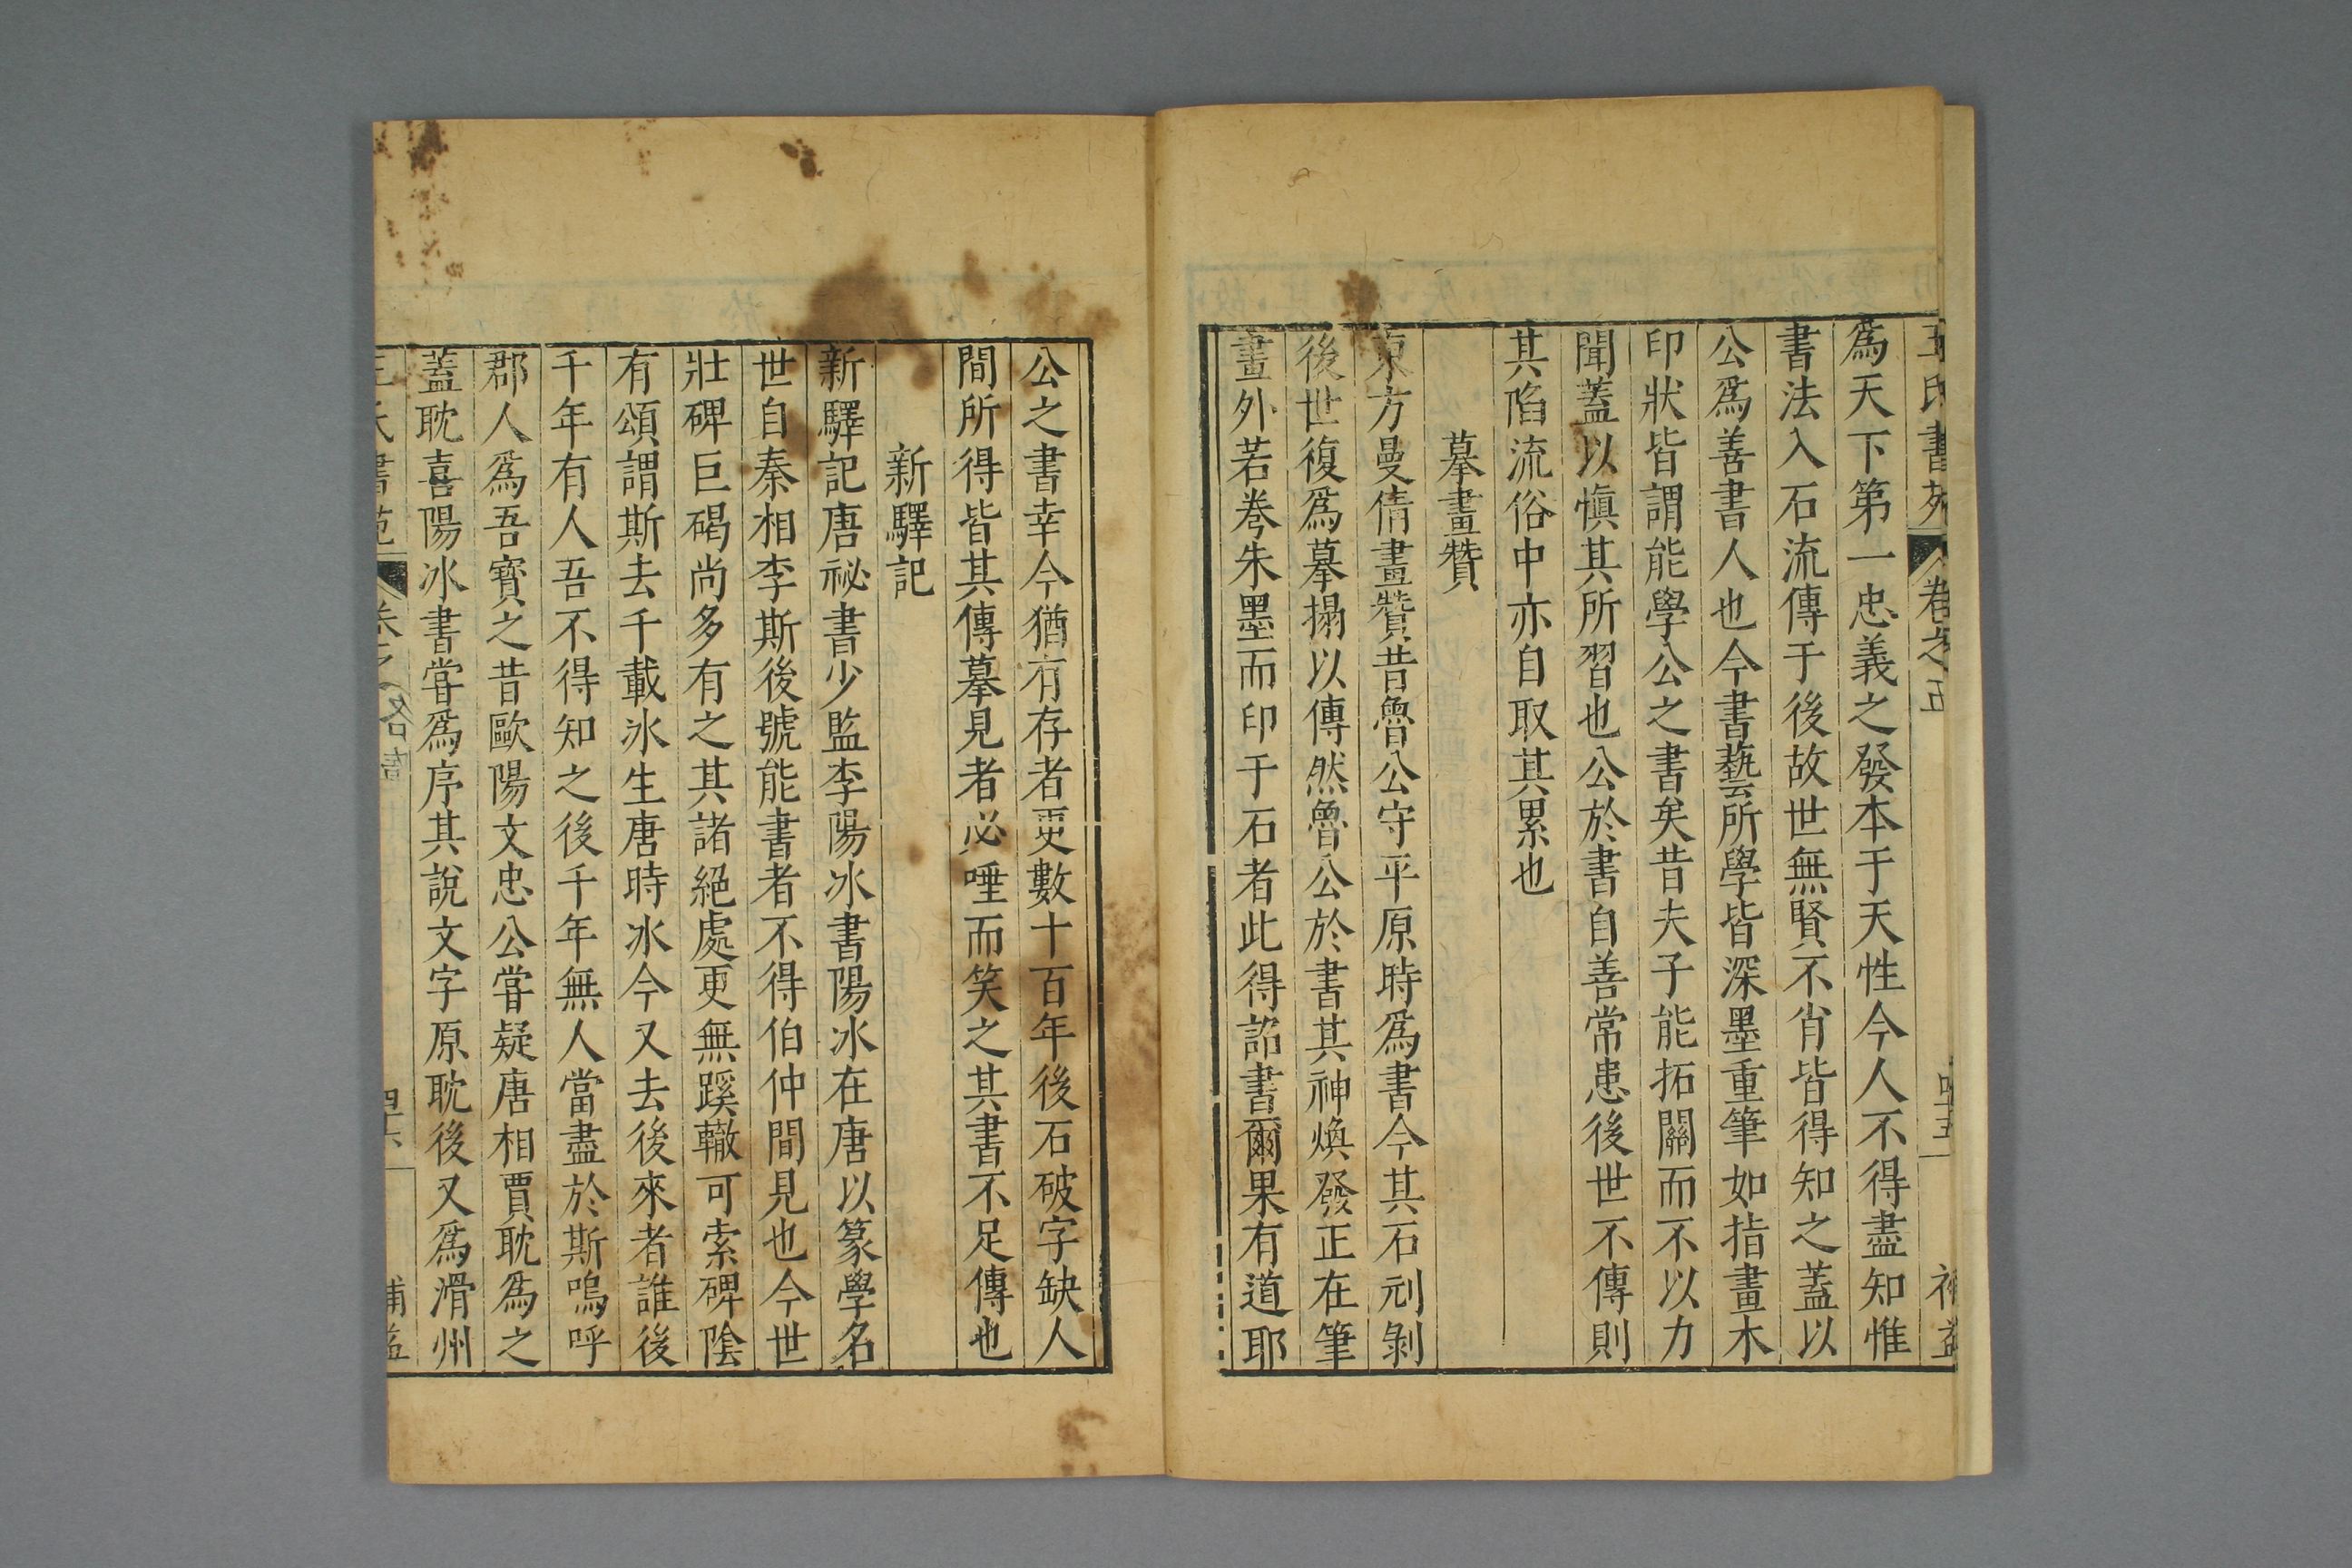 王氏書苑 卷之五 四十五 補益
爲天下第一忠義之發本于天性今人不得盡知惟
書法入石流傳于後故世無賢不肖皆得知之蓋以
公爲善書人也今書藝所學皆深墨重筆如指畫木
印狀皆謂能學公之書矣昔夫子能拓關而不以力
聞蓋以慎其所習也公於書自善常患後世不傳則
其陷流俗中亦自取其累也
摹畫贊
東方曼倩畫贊昔魯公守平原時爲書今其石刓剝
後世復爲摹搨以傳然魯公於書其神煥發正在筆
畫外若卷朱墨而印于石者此得詔書爾果有道耶
公之書幸今猶有存者更數十百年後石破字缺人
間所得皆其傳摹見者必唾而笑之其書不足傳也
新驛記
新驛記唐祕書少監李陽冰書陽冰在唐以篆學名
世自秦相李斯後號能書者不得伯仲間見也今世
壯碑巨碣尚多有之其諸絕處更無蹊轍可索碑陰
有頌謂斯去千載冰生唐時冰今又去後來者誰後
千年有人吾不得知之後千年無人當盡於斯嗚呼
郡人爲吾寶之昔歐陽文忠公嘗疑唐相賈耽爲之
蓋耽喜陽冰書嘗爲序其說文字原耽後又爲滑州
王氏書苑 卷之 四十六 補益